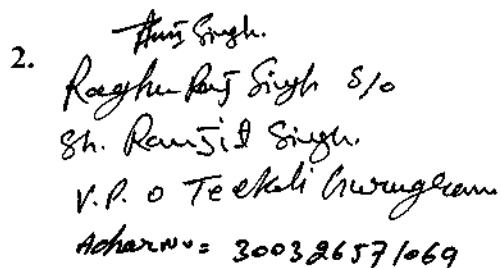 Singh.
2.
Raghu Raj Singh S/o
Sh. Ranjit Singh.
V.P.O Teekli Gurugram
Adhar No = 300326571069